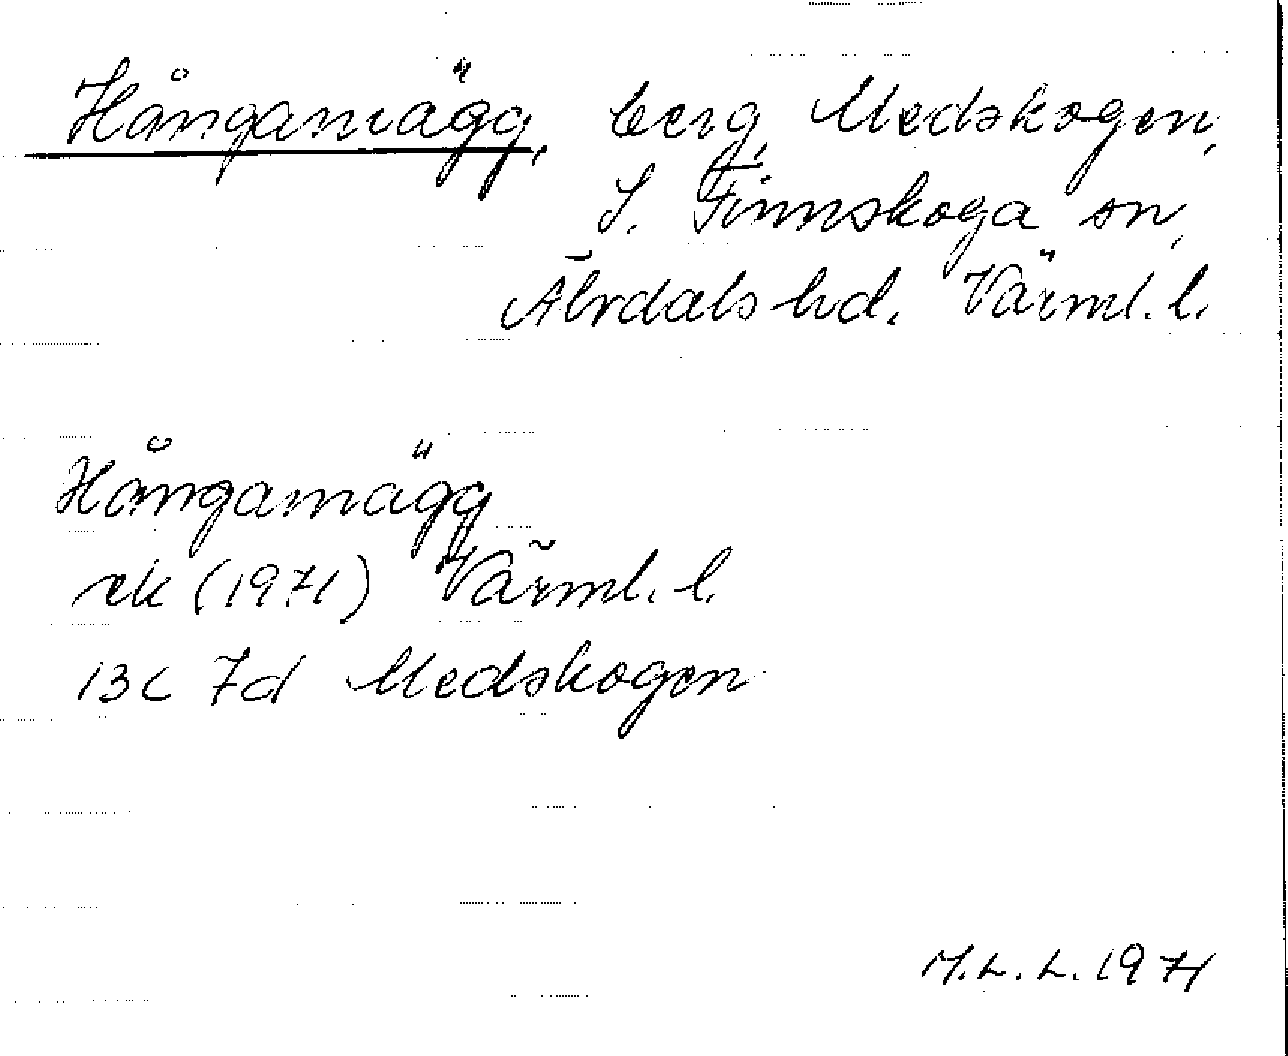 Hångamägg, berg, Medskogen,
S. Finnskoga sn,
Älvdals hd. Värml. l.
Hångamägg
ek (1971) Värml. l.
13C 7d Medskogen
M.L.L. 1971